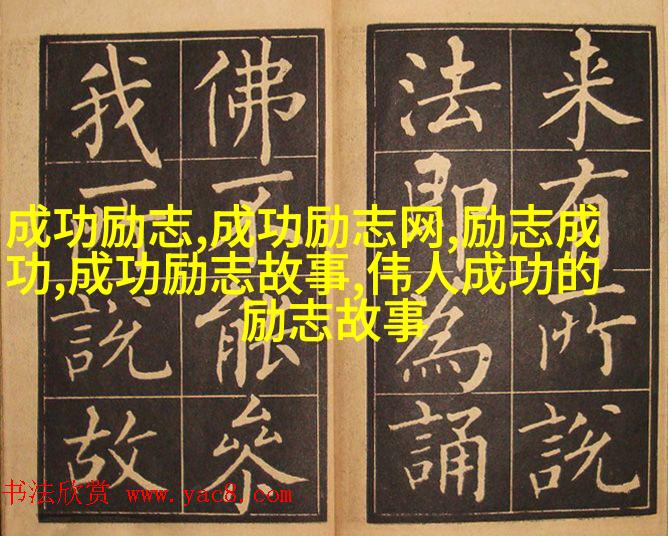 来有所說
法即為誦
佛不能叅
我所說故
成功励志,成功励志网,励志成
功,成功励志故事,伟人成功的
励志故事
书法欣赏 www.yac8.com